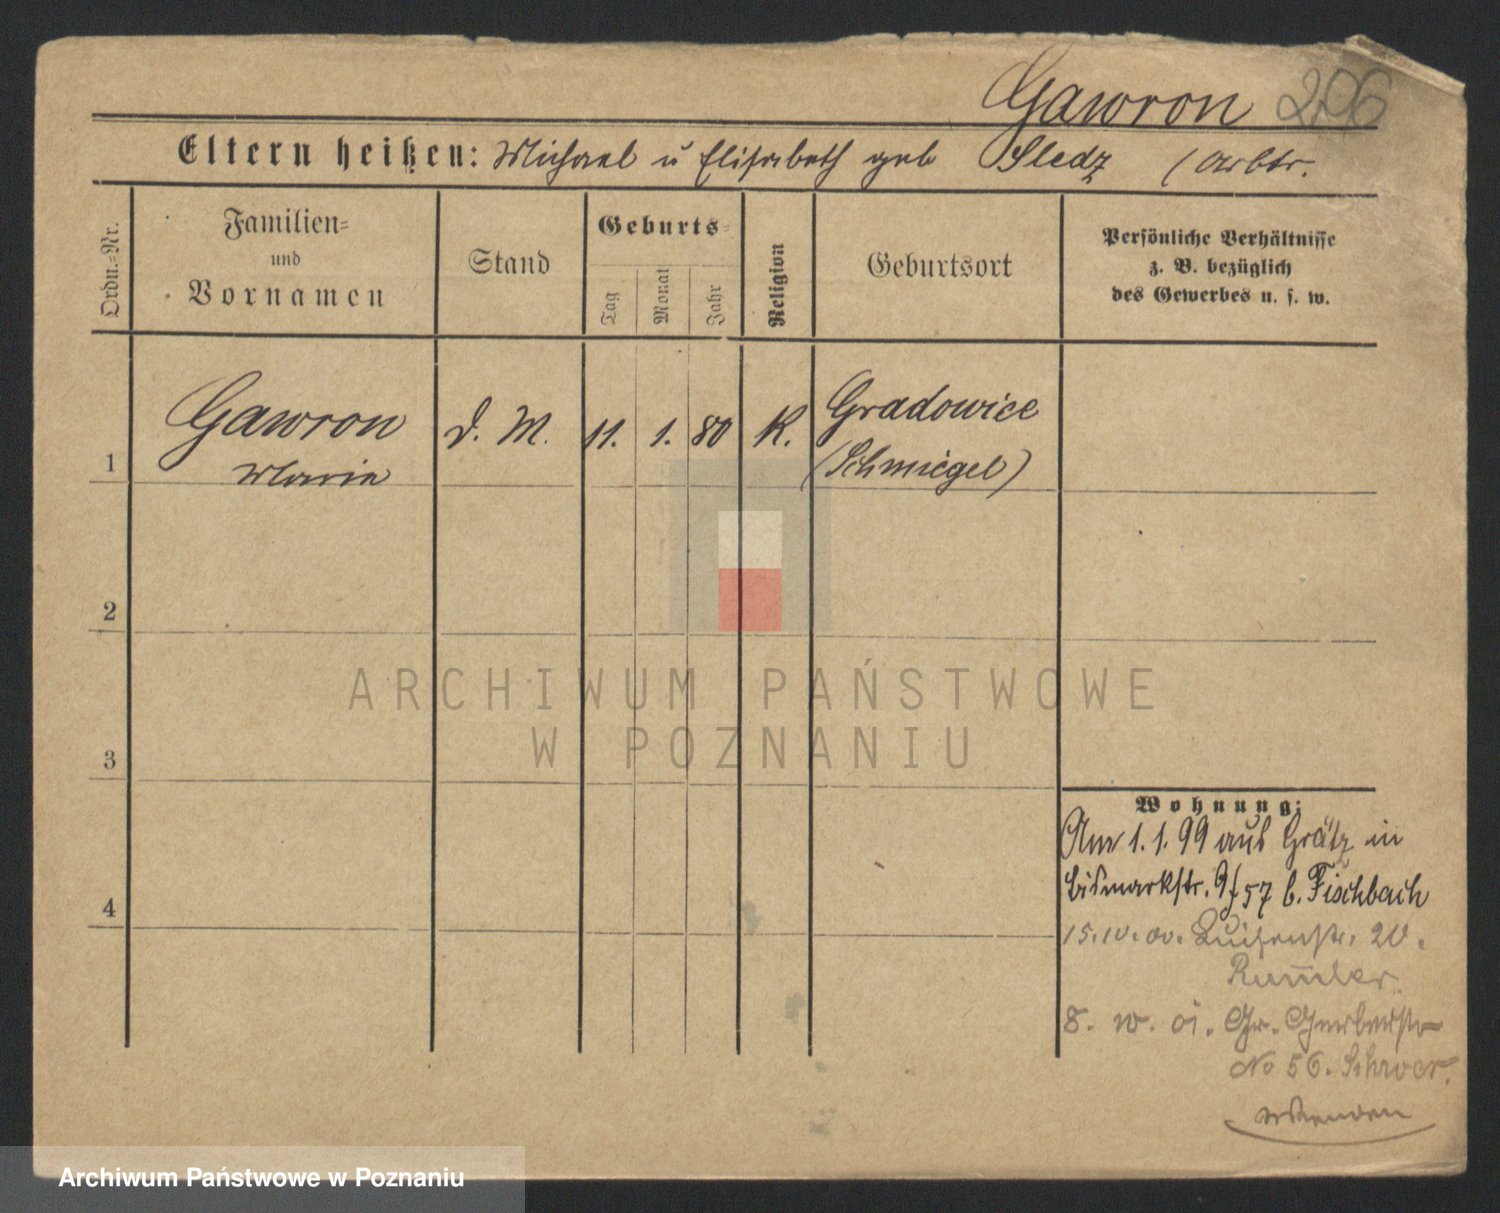 Gawron 206
Eltern heißen: Michael u Elisabeth geb Sledz (Arbtr.
Ordn.=Nr.
Familien=
und
Vornamen
Stand
Geburts=
Tag
Monat
Jahr
Religion
Geburtsort
Persönliche Verhältnisse
z. B. bezüglich
des Gewerbes u. s. w.
1
Gawron
Maria
d. M.
11.
1.
80
K.
Gradowice
(Schmiegel)
2
3
4
ARCHIWUM PAŃSTWOWE
W POZNANIU
Wohnung:
Am 1.1.99 aus Grätz in
Bismarkstr. 9/57 b. Fischbach
15.10.00. Luisenstr. 20.
8. 10. 01. Gr. Gerberstr
No 56. Schroer.
Archiwum Państwowe w Poznaniu